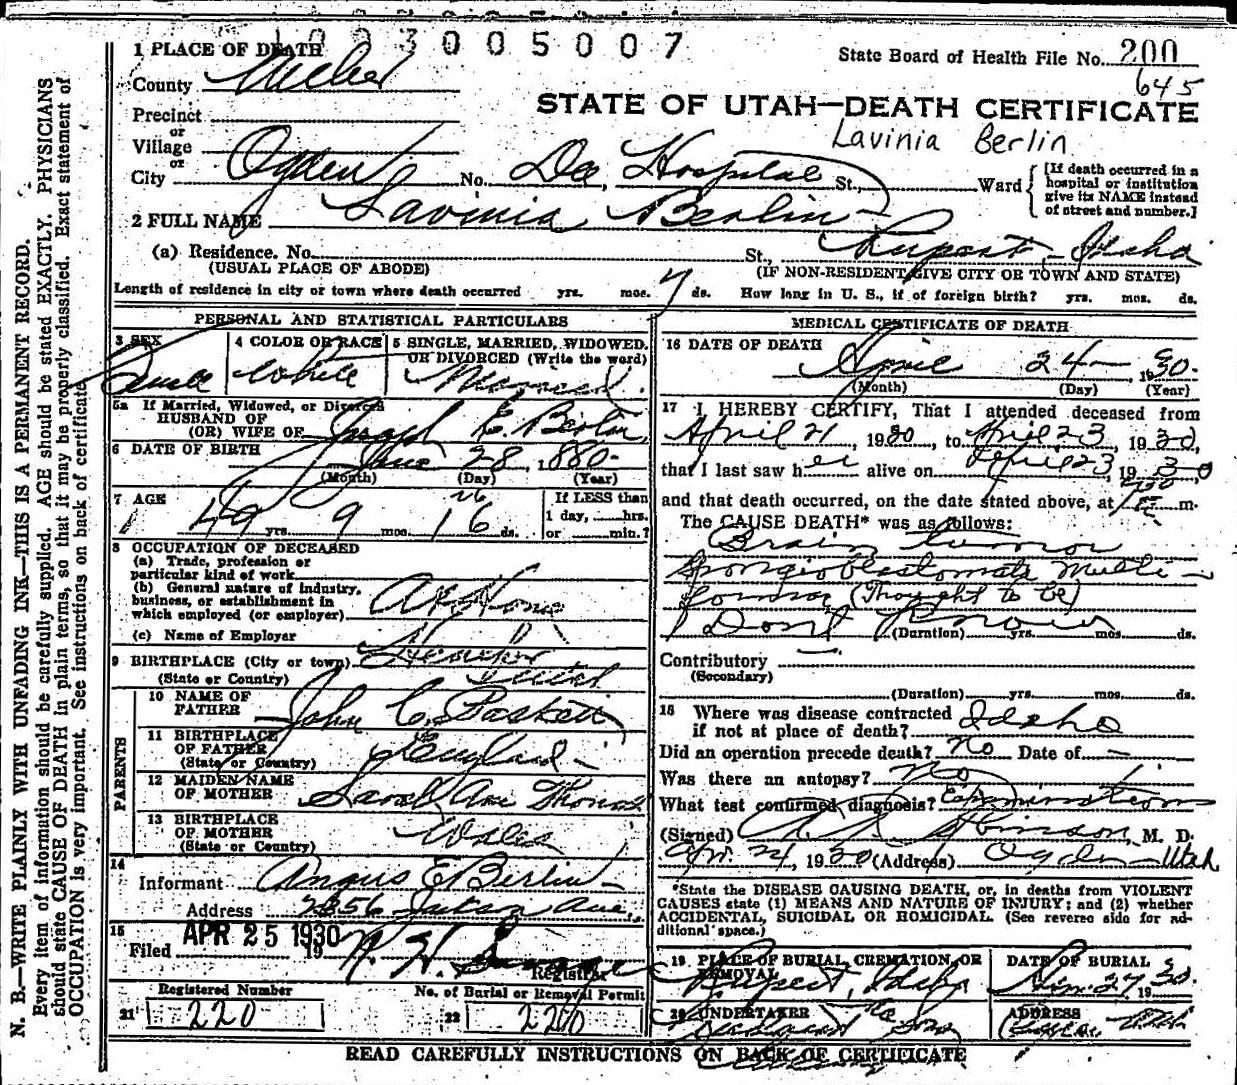 1003005007
State Board of Health File No. 200
645
1 PLACE OF DEATH
County Weber
STATE OF UTAH—DEATH CERTIFICATE
Precinct
or
Village
or
Lavinia Berlin
City Ogden No. Dee Hospital St., Ward
[If death occurred in a
hospital or institution
give its NAME instead
of street and number.]
2 FULL NAME Lavinia Berlin
(a) Residence. No. St., Rupert, Idaho
(USUAL PLACE OF ABODE) (IF NON-RESIDENT GIVE CITY OR TOWN AND STATE)
Length of residence in city or town where death occurred yrs. mos. 7 ds. How long in U. S., if of foreign birth? yrs. mos. ds.
PERSONAL AND STATISTICAL PARTICULARS
3 SEX 4 COLOR OR RACE 5 SINGLE, MARRIED, WIDOWED,
OR DIVORCED (Write the word)
White Married
5a If Married, Widowed, or Divorced
HUSBAND OF
(OR) WIFE OF Joseph E. Berlin
6 DATE OF BIRTH June 28, 1880
(Month) (Day) (Year)
7 AGE If LESS than
1 day, hrs.
or min.?
49 yrs. 9 mos. 16 ds.
26
8 OCCUPATION OF DECEASED
(a) Trade, profession or
particular kind of work
(b) General nature of industry,
business, or establishment in
which employed (or employer) At Home
(c) Name of Employer
9 BIRTHPLACE (City or town)
(State or Country) Utah
PARENTS
10 NAME OF
FATHER John C. Paskett
11 BIRTHPLACE
OF FATHER
(State or Country) England
12 MAIDEN NAME
OF MOTHER Sarah Ann Thomas
13 BIRTHPLACE
OF MOTHER
(State or Country) Wales
14
Informant Angus E Berlin
Address 2356 Ave.
15
Filed APR 25 1930 19
Registrar
Registered Number
21 220
No. of Burial or Removal Permit
22 220
MEDICAL CERTIFICATE OF DEATH
16 DATE OF DEATH
April 24 1930
(Month) (Day) (Year)
17 I HEREBY CERTIFY, That I attended deceased from
April 21, 1930, to April 23, 1930,
that I last saw her alive on April 23, 1930
and that death occurred, on the date stated above, at m.
The CAUSE DEATH* was as follows:
Brain tumor
Spongioblastomata Multi-
forma (Thought to be)
Don't Know
(Duration) yrs. mos. ds.
Contributory
(Secondary)
(Duration) yrs. mos. ds.
18 Where was disease contracted
if not at place of death? Idaho
Did an operation precede death? No Date of —
Was there an autopsy? No
What test confirmed diagnosis? Examination
(Signed) M. D.
Apr. 24, 1930 (Address) Ogden Utah
*State the DISEASE CAUSING DEATH, or, in deaths from VIOLENT
CAUSES state (1) MEANS AND NATURE OF INJURY; and (2) whether
ACCIDENTAL, SUICIDAL OR HOMICIDAL. (See reverse side for ad-
ditional space.)
19 PLACE OF BURIAL CREMATION, OR
REMOVAL
Rupert, Idaho
DATE OF BURIAL
Apr. 27, 1930
20 UNDERTAKER
ADDRESS
Utah
READ CAREFULLY INSTRUCTIONS ON BACK OF CERTIFICATE
N. B.—WRITE PLAINLY WITH UNFADING INK—THIS IS A PERMANENT RECORD.
Every item of information should be carefully supplied. AGE should be stated EXACTLY. PHYSICIANS
should state CAUSE OF DEATH in plain terms, so that it may be properly classified. Exact statement of
OCCUPATION is very important. See instructions on back of certificate.